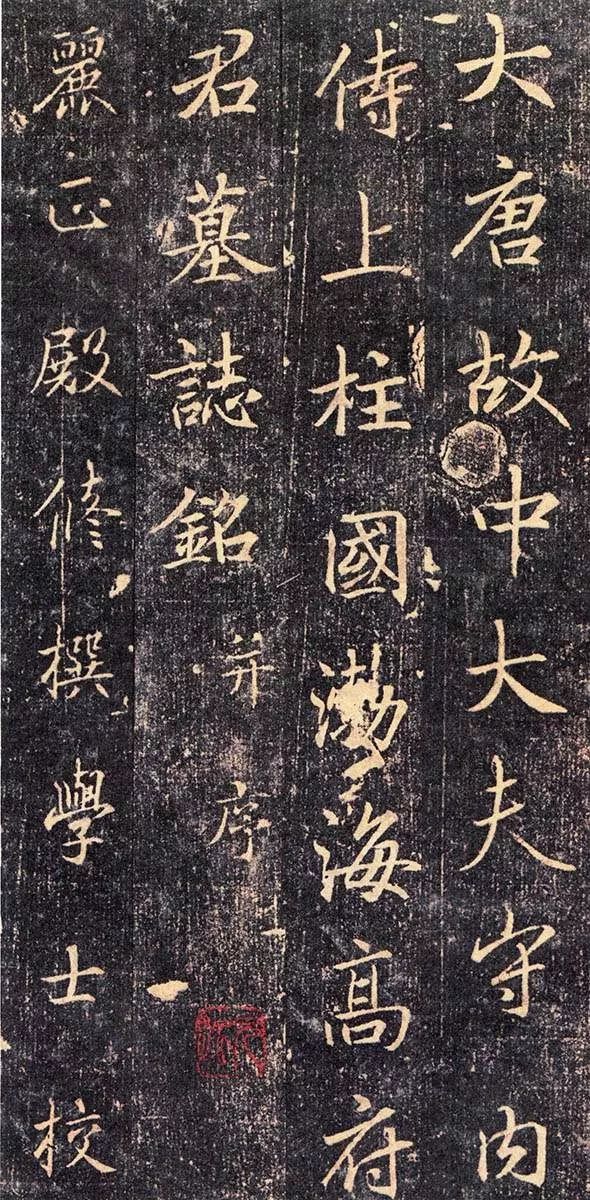 大唐故中大夫守內
侍上柱國渤海高府
君墓誌銘并序
麗正殿修撰學士校